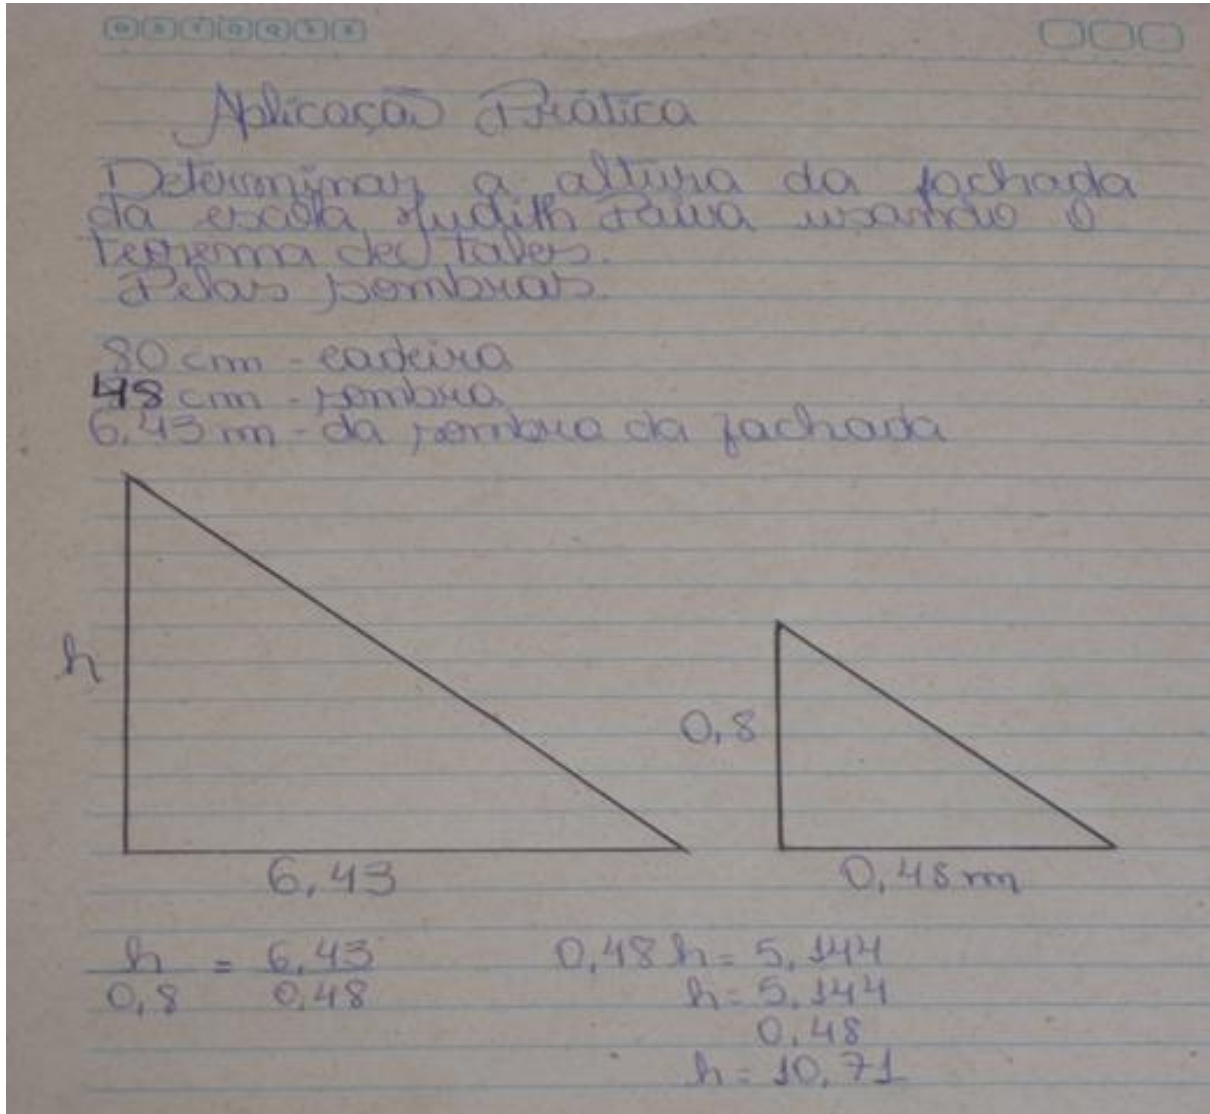 D S T Q Q S S
Aplicação Prática
Determinar a altura da fachada
da escola Judith Paiva usando o
teorema de tales.
Pelas sombras.
80 cm - cadeira
48 cm - sombra
6,43 m - da sombra da fachada
h
0,8
6,43
0,48 m
h/0,8 = 6,43/0,48
0,48 h = 5,144
h = 5,144
0,48
h = 10,71